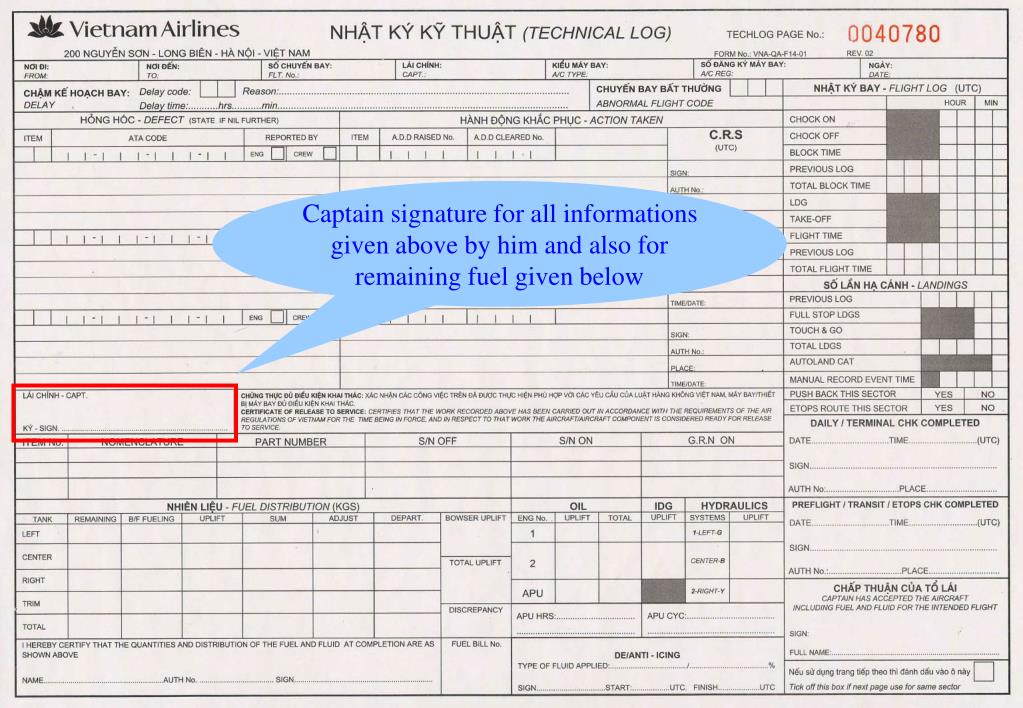 Vietnam Airlines
NHẬT KÝ KỸ THUẬT (TECHNICAL LOG)
TECHLOG PAGE No.: 0040780
200 NGUYỄN SƠN - LONG BIÊN - HÀ NỘI - VIỆT NAM
FORM No.: VNA-QA-F14-01 REV. 02
NƠI ĐI: NƠI ĐẾN: SỐ CHUYẾN BAY: LÁI CHÍNH: KIỂU MÁY BAY: SỐ ĐĂNG KÝ MÁY BAY: NGÀY:
FROM: TO: FLT. No.: CAPT.: A/C TYPE. A/C REG: DATE:
CHẬM KẾ HOẠCH BAY: Delay code: Reason:
DELAY Delay time:...........hrs..........min
CHUYẾN BAY BẤT THƯỜNG
ABNORMAL FLIGHT CODE
NHẬT KÝ BAY - FLIGHT LOG (UTC)
HOUR MIN
HỎNG HÓC - DEFECT (STATE IF NIL FURTHER)
HÀNH ĐỘNG KHẮC PHỤC - ACTION TAKEN
ITEM ATA CODE REPORTED BY
ITEM A.D.D RAISED No. A.D.D CLEARED No.
C.R.S
(UTC)
ENG CREW
SIGN:
AUTH No.:
Captain signature for all informations
given above by him and also for
remaining fuel given below
TIME/DATE:
ENG CREW
SIGN:
AUTH No.:
PLACE:
TIME/DATE:
CHOCK ON
CHOCK OFF
BLOCK TIME
PREVIOUS LOG
TOTAL BLOCK TIME
LDG
TAKE-OFF
FLIGHT TIME
PREVIOUS LOG
TOTAL FLIGHT TIME
SỐ LẦN HẠ CÁNH - LANDINGS
PREVIOUS LOG
FULL STOP LDGS
TOUCH & GO
TOTAL LDGS
AUTOLAND CAT
MANUAL RECORD EVENT TIME
PUSH BACK THIS SECTOR YES NO
ETOPS ROUTE THIS SECTOR YES NO
LÁI CHÍNH - CAPT.
KÝ - SIGN.
CHỨNG THỰC ĐỦ ĐIỀU KIỆN KHAI THÁC: XÁC NHẬN CÁC CÔNG VIỆC TRÊN ĐÃ ĐƯỢC THỰC HIỆN PHÙ HỢP VỚI CÁC YÊU CẦU CỦA LUẬT HÀNG KHÔNG VIỆT NAM, MÁY BAY/THIẾT
BỊ MÁY BAY ĐỦ ĐIỀU KIỆN KHAI THÁC.
CERTIFICATE OF RELEASE TO SERVICE: CERTIFIES THAT THE WORK RECORDED ABOVE HAS BEEN CARRIED OUT IN ACCORDANCE WITH THE REQUIREMENTS OF THE AIR
REGULATIONS OF VIETNAM FOR THE TIME BEING IN FORCE, AND IN RESPECT TO THAT WORK THE AIRCRAFT/AIRCRAFT COMPONENT IS CONSIDERED READY FOR RELEASE
TO SERVICE.
ITEM No. NOMENCLATURE PART NUMBER S/N OFF S/N ON G.R.N ON
DAILY / TERMINAL CHK COMPLETED
DATE TIME (UTC)
SIGN
AUTH No: PLACE
NHIÊN LIỆU - FUEL DISTRIBUTION (KGS)
OIL IDG HYDRAULICS
TANK REMAINING B/F FUELING UPLIFT SUM ADJUST DEPART. BOWSER UPLIFT ENG No. UPLIFT TOTAL UPLIFT SYSTEMS UPLIFT
LEFT 1 1-LEFT-G
CENTER TOTAL UPLIFT 2 CENTER-B
RIGHT APU 2-RIGHT-Y
TRIM DISCREPANCY APU HRS: APU CYC:
TOTAL
PREFLIGHT / TRANSIT / ETOPS CHK COMPLETED
DATE TIME (UTC)
SIGN
AUTH No.: PLACE
CHẤP THUẬN CỦA TỔ LÁI
CAPTAIN HAS ACCEPTED THE AIRCRAFT
INCLUDING FUEL AND FLUID FOR THE INTENDED FLIGHT
SIGN:
FULL NAME:
I HEREBY CERTIFY THAT THE QUANTITIES AND DISTRIBUTION OF THE FUEL AND FLUID AT COMPLETION ARE AS
SHOWN ABOVE
NAME AUTH No. SIGN
FUEL BILL No.
DE/ANTI - ICING
TYPE OF FLUID APPLIED: / %
SIGN START: UTC. FINISH UTC
Nếu sử dụng trang tiếp theo thì đánh dấu vào ô này
Tick off this box if next page use for same sector